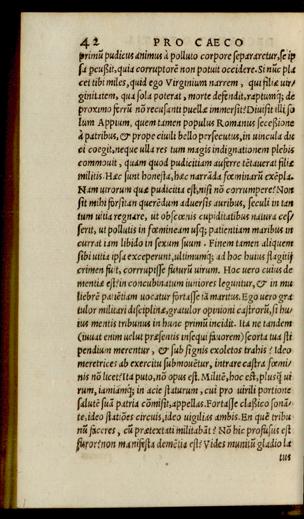 42 PRO CAECO
primũ pudicus animus à polluto corpore separaretur, se ip
sa pcußit, quia corruptorẽ non potuit occidere. Si nũc pla
cet tibi miles, quid ego Virginium narrem, qui filiæ uir=
ginitatem, qua sola poterat, morte defendit, raptumq; de
proximo ferrũ nõ recusanti puellæ immersit? Dimisit illi so
lum Appium, quem tamen populus Romanus seceßione
à patribus, & prope ciuili bello persecutus, in uincula du
ci coegit, neque ulla res tum magis indignationem plebis
commouit, quam quod pudicitiam auferre tẽtauerat filiæ
militis. Hæc sunt honesta, hæc narrãda fœminarũ exẽpla.
Nam uirorum quæ pudicitia est, nisi nõ corrumpere? Non
sit mihi forsitan querẽdum aduersis auribus, seculi in tan
tum uitia regnare, ut obscœnis cupiditatibus natura ces/
serit, ut pollutis in fœmineam usq; patientiam maribus in
currat iam libido in sexum suum. Finem tamen aliquem
sibi uitia ipsa exceperunt, ultimumq; ad hoc huius flagitij
crimen fuit, corrupisse futurũ uirum. Hoc uero cuius de
mentiæ est? in concubinatum iuniores leguntur, & in mu
liebrẽ patiẽtiam uocatur fortasse iã maritus. Ego uero gra
tulor militari disciplinæ, gratulor opinioni castrorũ, si hu
ius mentis tribunus in hunc primũ incidit. Ita ne tandem
(iuuat enim uelut præsentis insequi furorem) scorta tua sti
pendium merentur, & sub signis exoletos trahis? Ideo
meretrices ab exercitu submouẽtur, intrare castra fœmi/
nis nõ licet? Ita puto, nõ opus est. Militẽ, hoc est, plusq̃ ui
rum, iamiamq; in acie staturum, cui pro uirili portione
salutẽ suã patria cõmisit, appellas. Fortasse claßico sonã=
te, ideo statiões circuis, ideo uigilias ambis. En quẽ tribu=
nũ faceres, cũ prætextati militabãt? Nõ hic profusus est
furor? non manifesta demẽtia est? Vides munitũ gladio la
tus